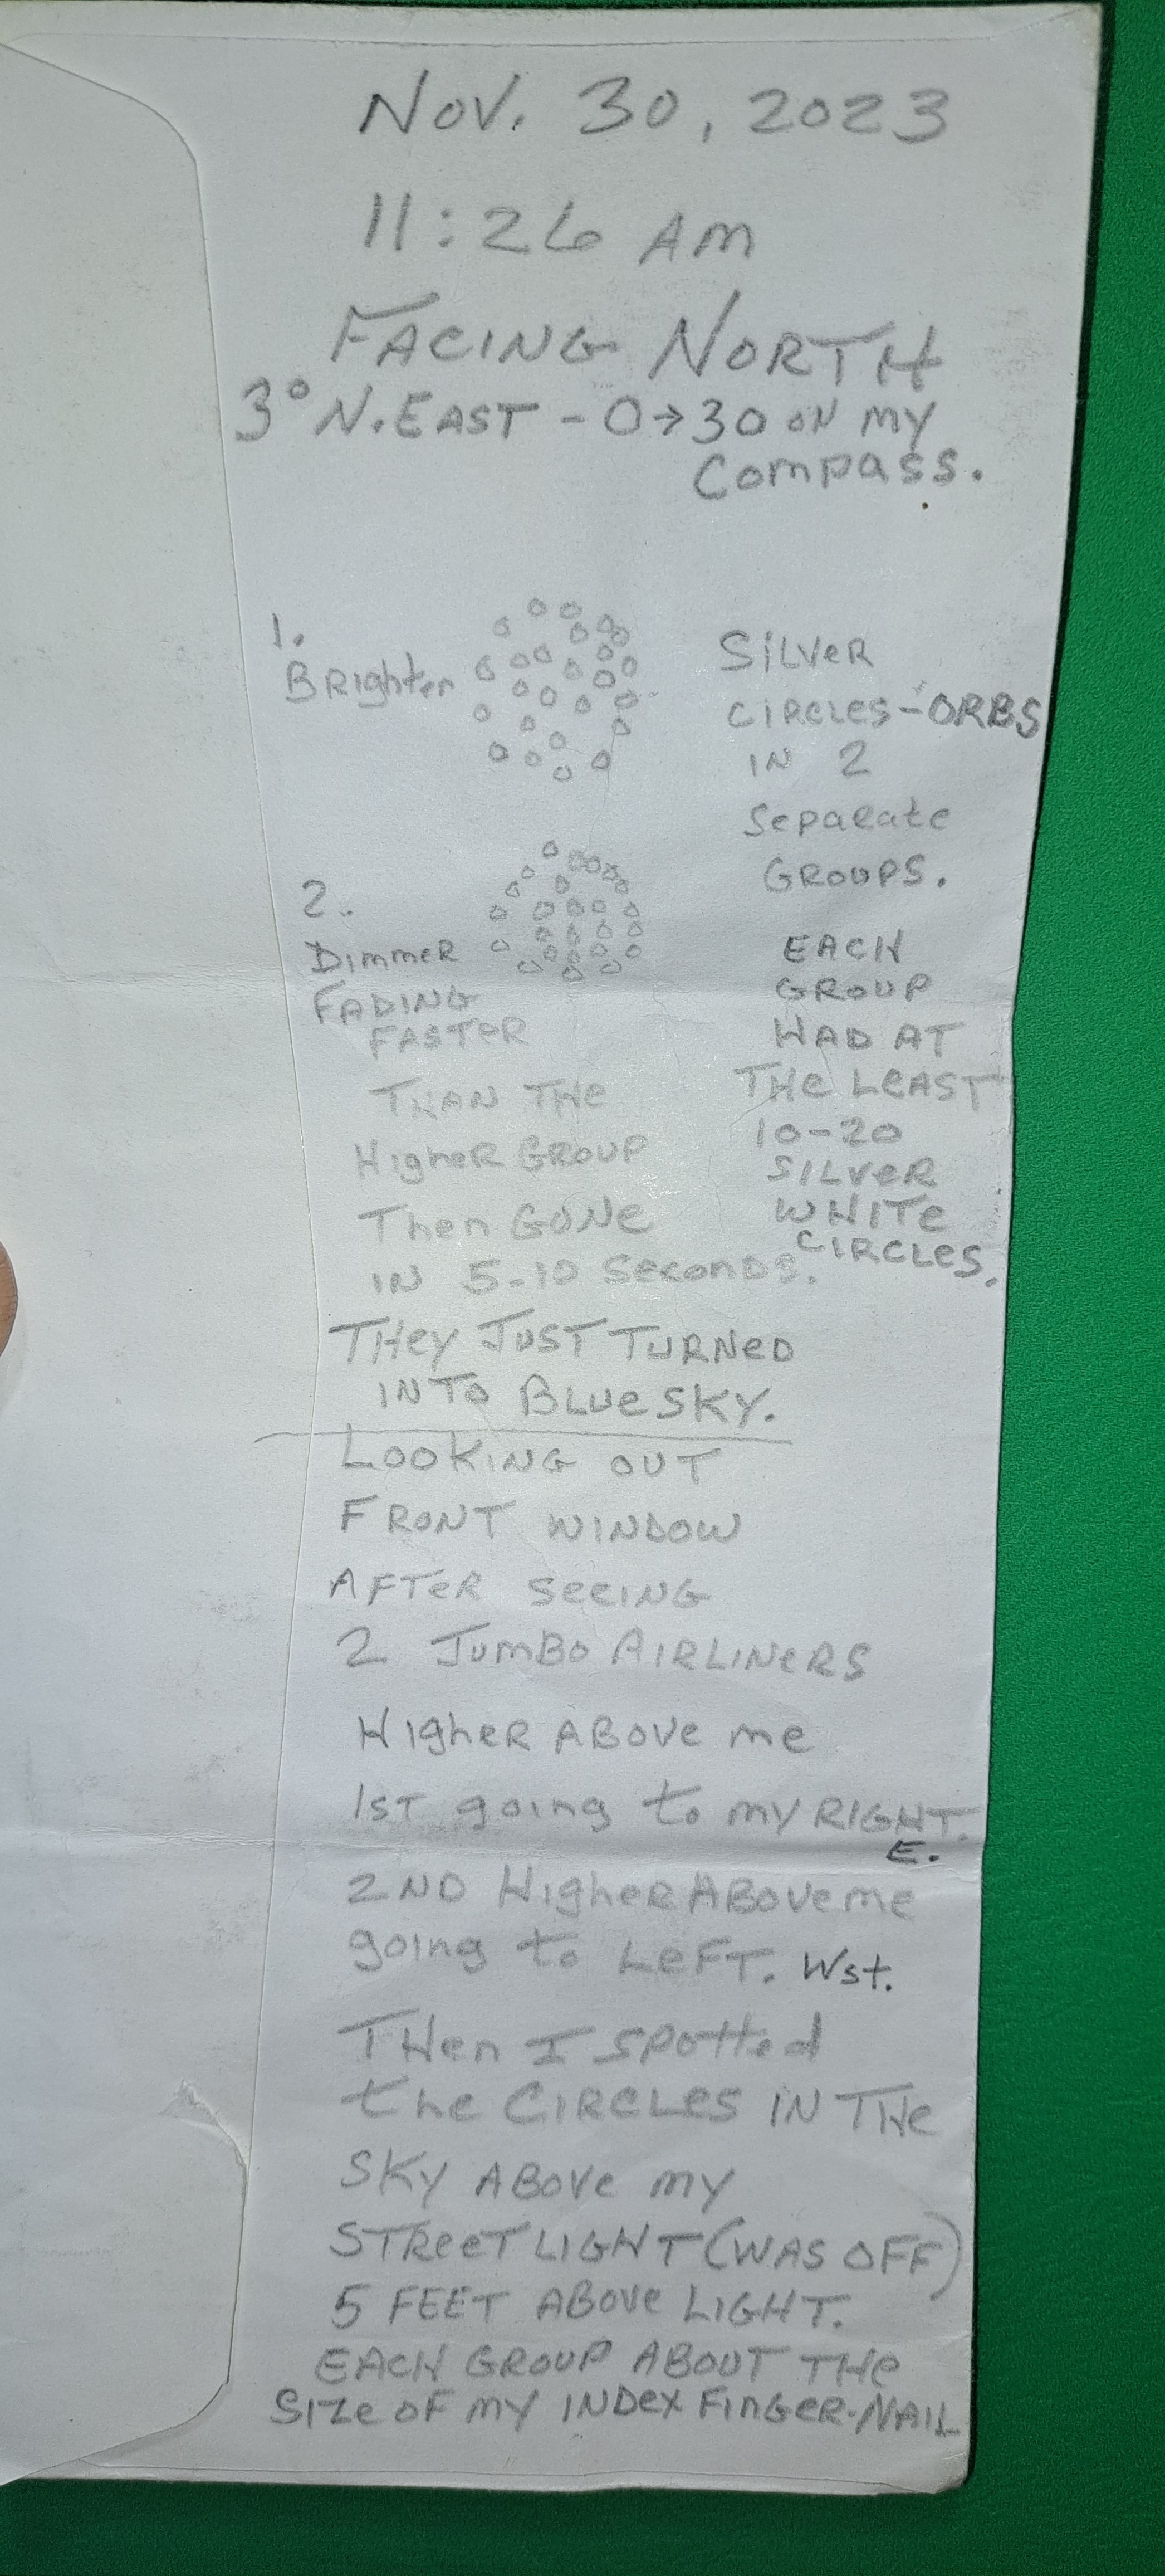 Nov. 30, 2023
11:26 AM
FACING NORTH
3° N.EAST - 0→30 ON MY
Compass.
1.
BRighter
SILVeR
CIRCLES-ORBS
IN 2
SePaRate
GROUPS.
2.
DimmeR
FADING
FASTeR
THAN THe
HigheR GROUP
Then GONe
IN 5-10 Seconds.
EACH
GROUP
HAD AT
THe LeAST
10-20
SILVeR
WHITe
CIRCLeS.
THey JUST TURNeD
INTO BLUe SKY.
LOOKING OUT
FRONT WINDOW
AFTeR SeeING
2 JumBO AIRLINeRS
HigheR ABOVe me
1ST going to my RIGHT.
E.
2ND HigheR ABove me
going to LeFT. Wst.
THen I Spotted
the CIRCLeS IN THe
SKY ABOVe my
STReeT LIGHT (WAS OFF)
5 FEET ABOVe LIGHT.
EACH GROUP ABOUT THe
SIZe OF my INDex FinGeR-NAIL